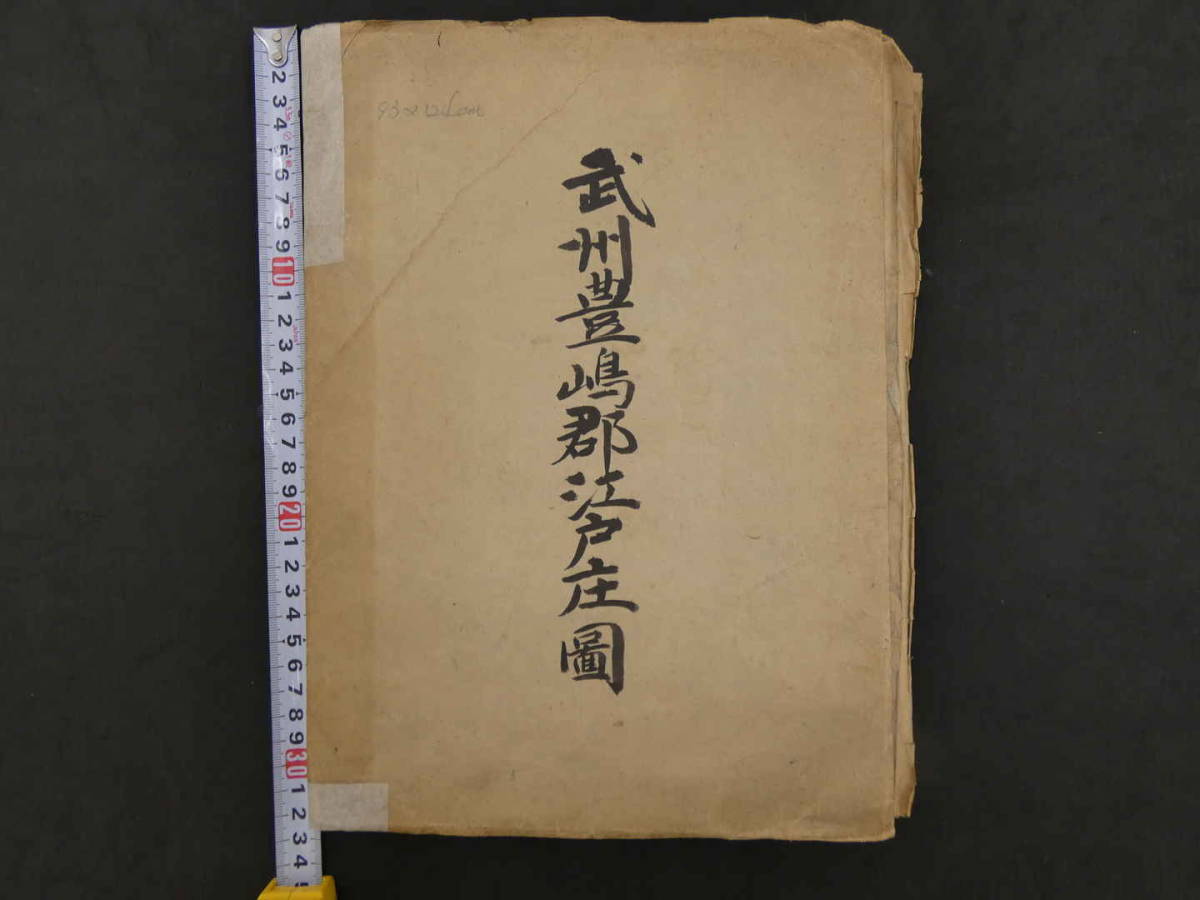 武州豊嶋郡江戸庄圖
2 3 4 5 6 7 8 9 10 1 2 3 4 5 6 7 8 9 20 1 2 3 4 5 6 7 8 9 30 1 2 3 4 5